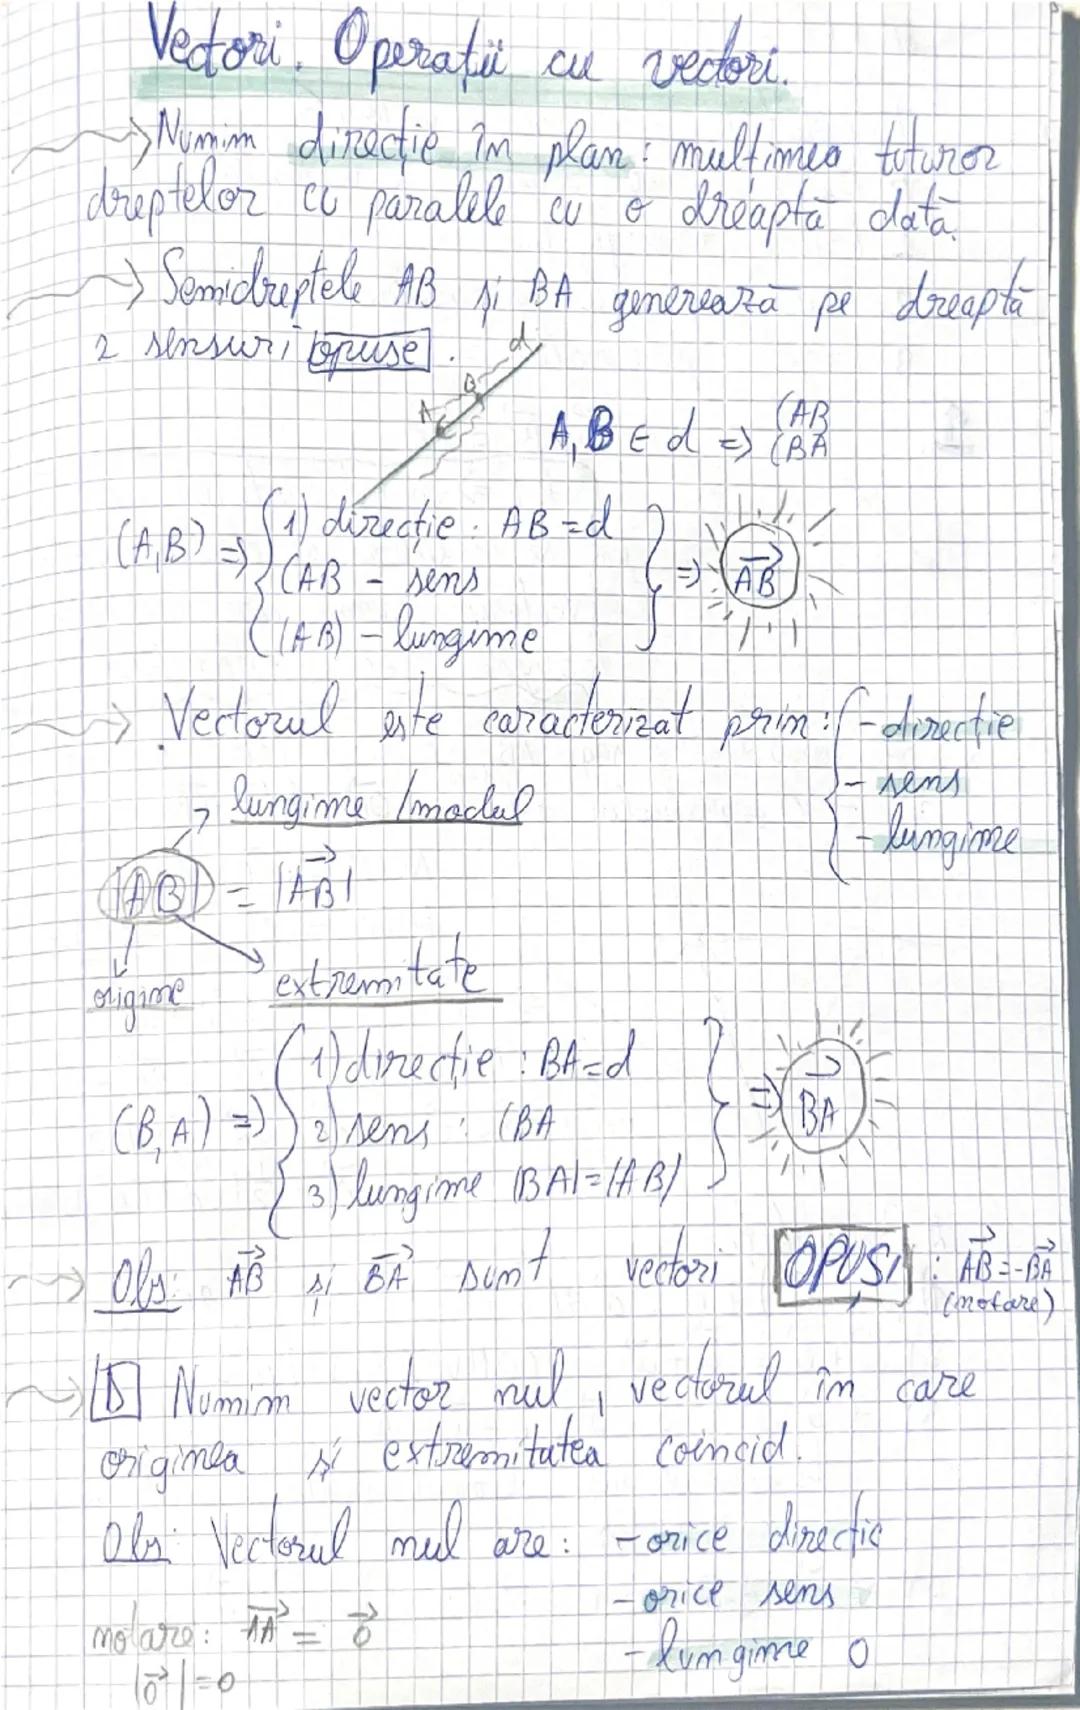 Vectori. Operații cu vectori.
Numim direcție în plan: mulțimea tuturor
dreptelor cu paralele cu o dreaptă dată.
Semidreptele AB și BA generează pe dreaptă
2 sensuri opuse.
d
B
A
A, B ∈ d => (AB
(BA
(A,B) => { 1) direcție: AB = d
(AB - sens
(AB) - lungime
} => \overrightarrow{AB}
Vectorul este caracterizat prim: { - direcție
- sens
- lungime
lungime /modul
|AB| = |\overrightarrow{AB}|
origine
extremitate
(B, A) => { 1) direcție : BA = d
2) sens : (BA
3) lungime |BA| = |AB|
} => \overrightarrow{BA}
Obs: \overrightarrow{AB} și \overrightarrow{BA} sunt vectori OPUȘI : \overrightarrow{AB} = -\overrightarrow{BA}
(notare)
D Numim vector nul, vectorul în care
originea și extremitatea coincid.
Obs: Vectorul nul are: - orice direcție
- orice sens
notare: \overrightarrow{AA} = \vec{0}
- lungime 0
|\vec{0}| = 0